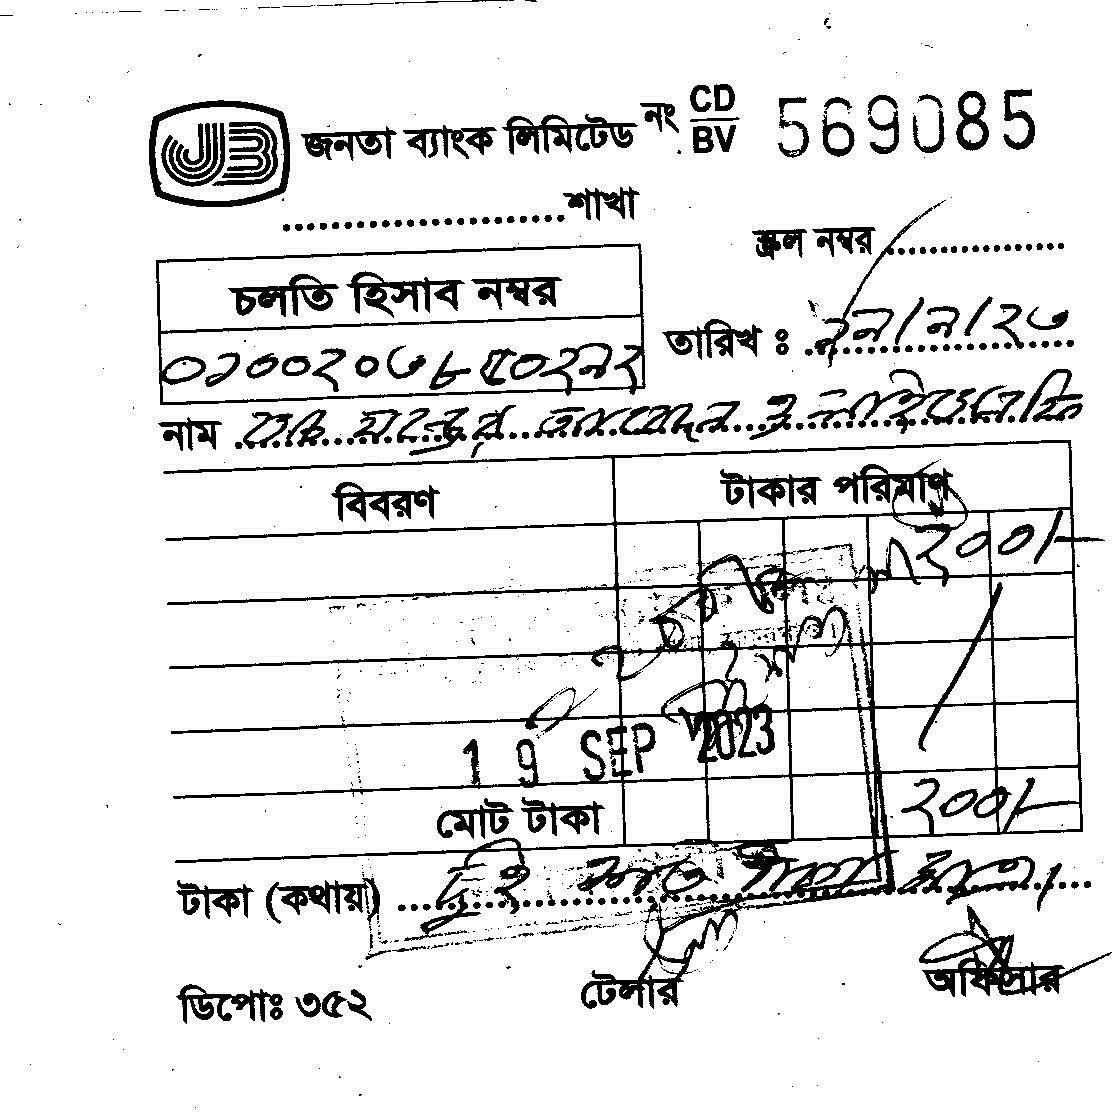 JB জনতা ব্যাংক লিমিটেড নং CD/BV 569085
......................শাখা
স্ক্রল নম্বর ......................
চলতি হিসাব নম্বর
তারিখ : ১৯/৯/২৩
০১০০২০৩৮৫০২৯২
নাম
বিবরণ টাকার পরিমাণ
২০০/-
19 SEP 2023
মোট টাকা ২০০/-
টাকা (কথায়) দুই শত টাকা মাত্র।
ডিপোঃ ৩৫২ টেলার অফিসার